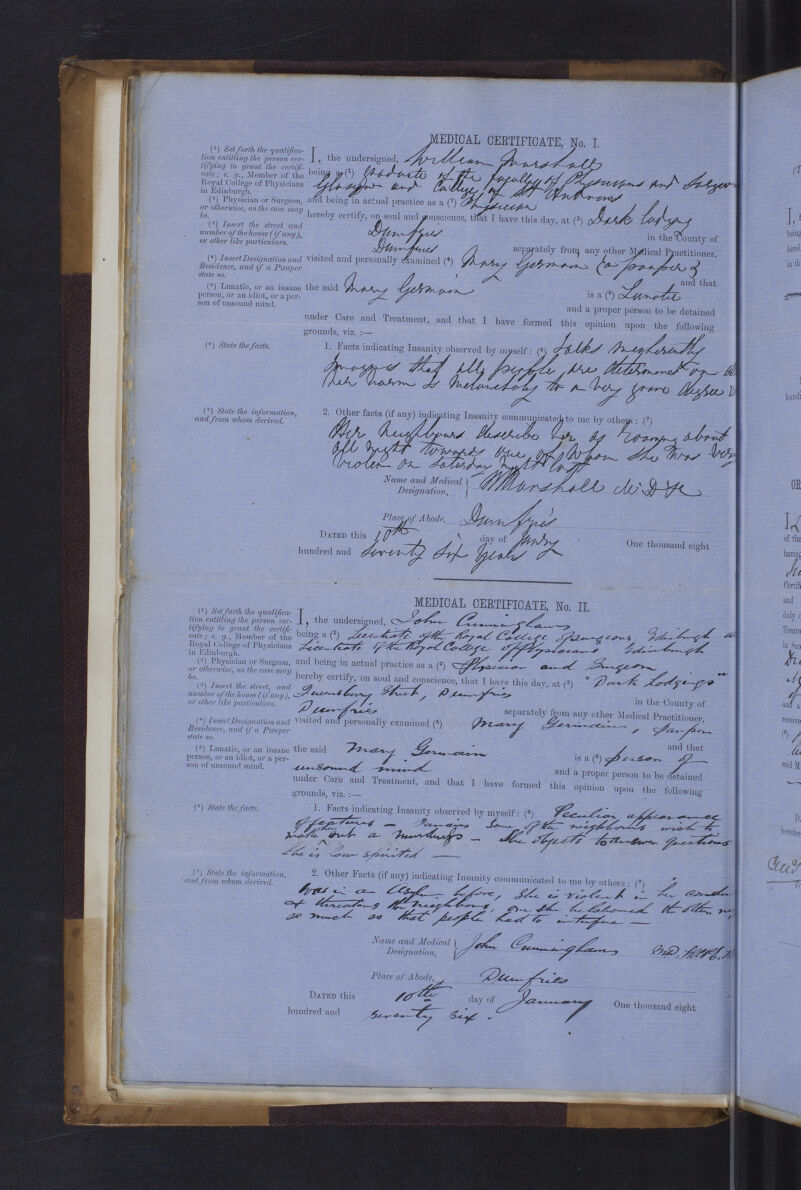 MEDICAL CERTIFICATE, No. I.
(1) Set forth the qualifica-
tion entitling the person cer-
tifying to grant the certifi-
cate; e. g., Member of the
Royal College of Physicians
in Edinburgh.
(2) Physician or Surgeon,
or otherwise, as the case may
be.
(3) Insert the street and
number of the house (if any),
or other like particulars.
(4) Insert Designation and
Residence, and if a Pauper
state so.
(5) Lunatic, or an insane
person, or an idiot, or a per-
son of unsound mind.
(6) State the facts.
(7) State the information,
and from whom derived.
I, the undersigned, William Marshall
being a (1) Graduate of the Faculty of Physicians and Surgeon
Glasgow and College of St Andrews
and being in actual practice as a (2) Physician
hereby certify, on soul and conscience, that I have this day, at (3) Dark lodging
Dumfries in the County of
Dumfries separately from any other Medical Practitioner,
visited and personally examined (4) Mary Germain (a pauper)
the said Mary Germain and that
is a (5) Lunatic
and a proper person to be detained
under Care and Treatment, and that I have formed this opinion upon the following
grounds, viz. :—
1. Facts indicating Insanity observed by myself: (6) Talks incoherently
Imagines that all people are determined on
her harm is melancholy to a very grave degree
2. Other facts (if any) indicating Insanity communicated to me by others: (7)
Her neighbours describe her as roaming about
all night towards one of whom she was very
violent on Saturday night last
Name and Medical Designation, WMarshall M.D
Place of Abode, Dumfries
DATED this 10th day of Janry One thousand eight
hundred and seventy six years
MEDICAL CERTIFICATE, No. II.
(1) Set forth the qualifica-
tion entitling the person cer-
tifying to grant the certifi-
cate; e. g., Member of the
Royal College of Physicians
in Edinburgh.
(2) Physician or Surgeon,
or otherwise, as the case may
be.
(3) Insert the street, and
number of the house (if any),
or other like particulars.
(4) Insert Designation and
Residence, and if a Pauper
state so.
(5) Lunatic, or an insane
person, or an idiot, or a per-
son of unsound mind.
(6) State the facts.
(7) State the information,
and from whom derived.
I, the undersigned, John Cunningham
being a (1) Licentiate of the Royal College of Surgeons, Edinburgh
Licentiate of the Royal College of Physicians Edinburgh
and being in actual practice as a (2) Physician and Surgeon
hereby certify, on soul and conscience, that I have this day, at (3) "Dark Lodgings"
Queensbury Street, Dumfries in the County of
Dumfries separately from any other Medical Practitioner,
visited and personally examined (4) Mary Germain, Pauper
the said Mary Germain and that
is a (5) person of
unsound mind and a proper person to be detained
under Care and Treatment, and that I have formed this opinion upon the following
grounds, viz. :—
1. Facts indicating Insanity observed by myself: (6) Peculiar appearance
of features — Fancies some of her neighbours wish to
make her out a murderess — She objects to answer questions
She is low spirited —
2. Other Facts (if any) indicating Insanity communicated to me by others: (7)
Was in an Asylum before, She is violent in her
& threatens her neighbours, one she belaboured the other
so much as that people had to interfere —
Name and Medical Designation, John Cunningham MD.
Place of Abode, Dumfries
DATED this 10th day of January One thousand eight
hundred and seventy six.